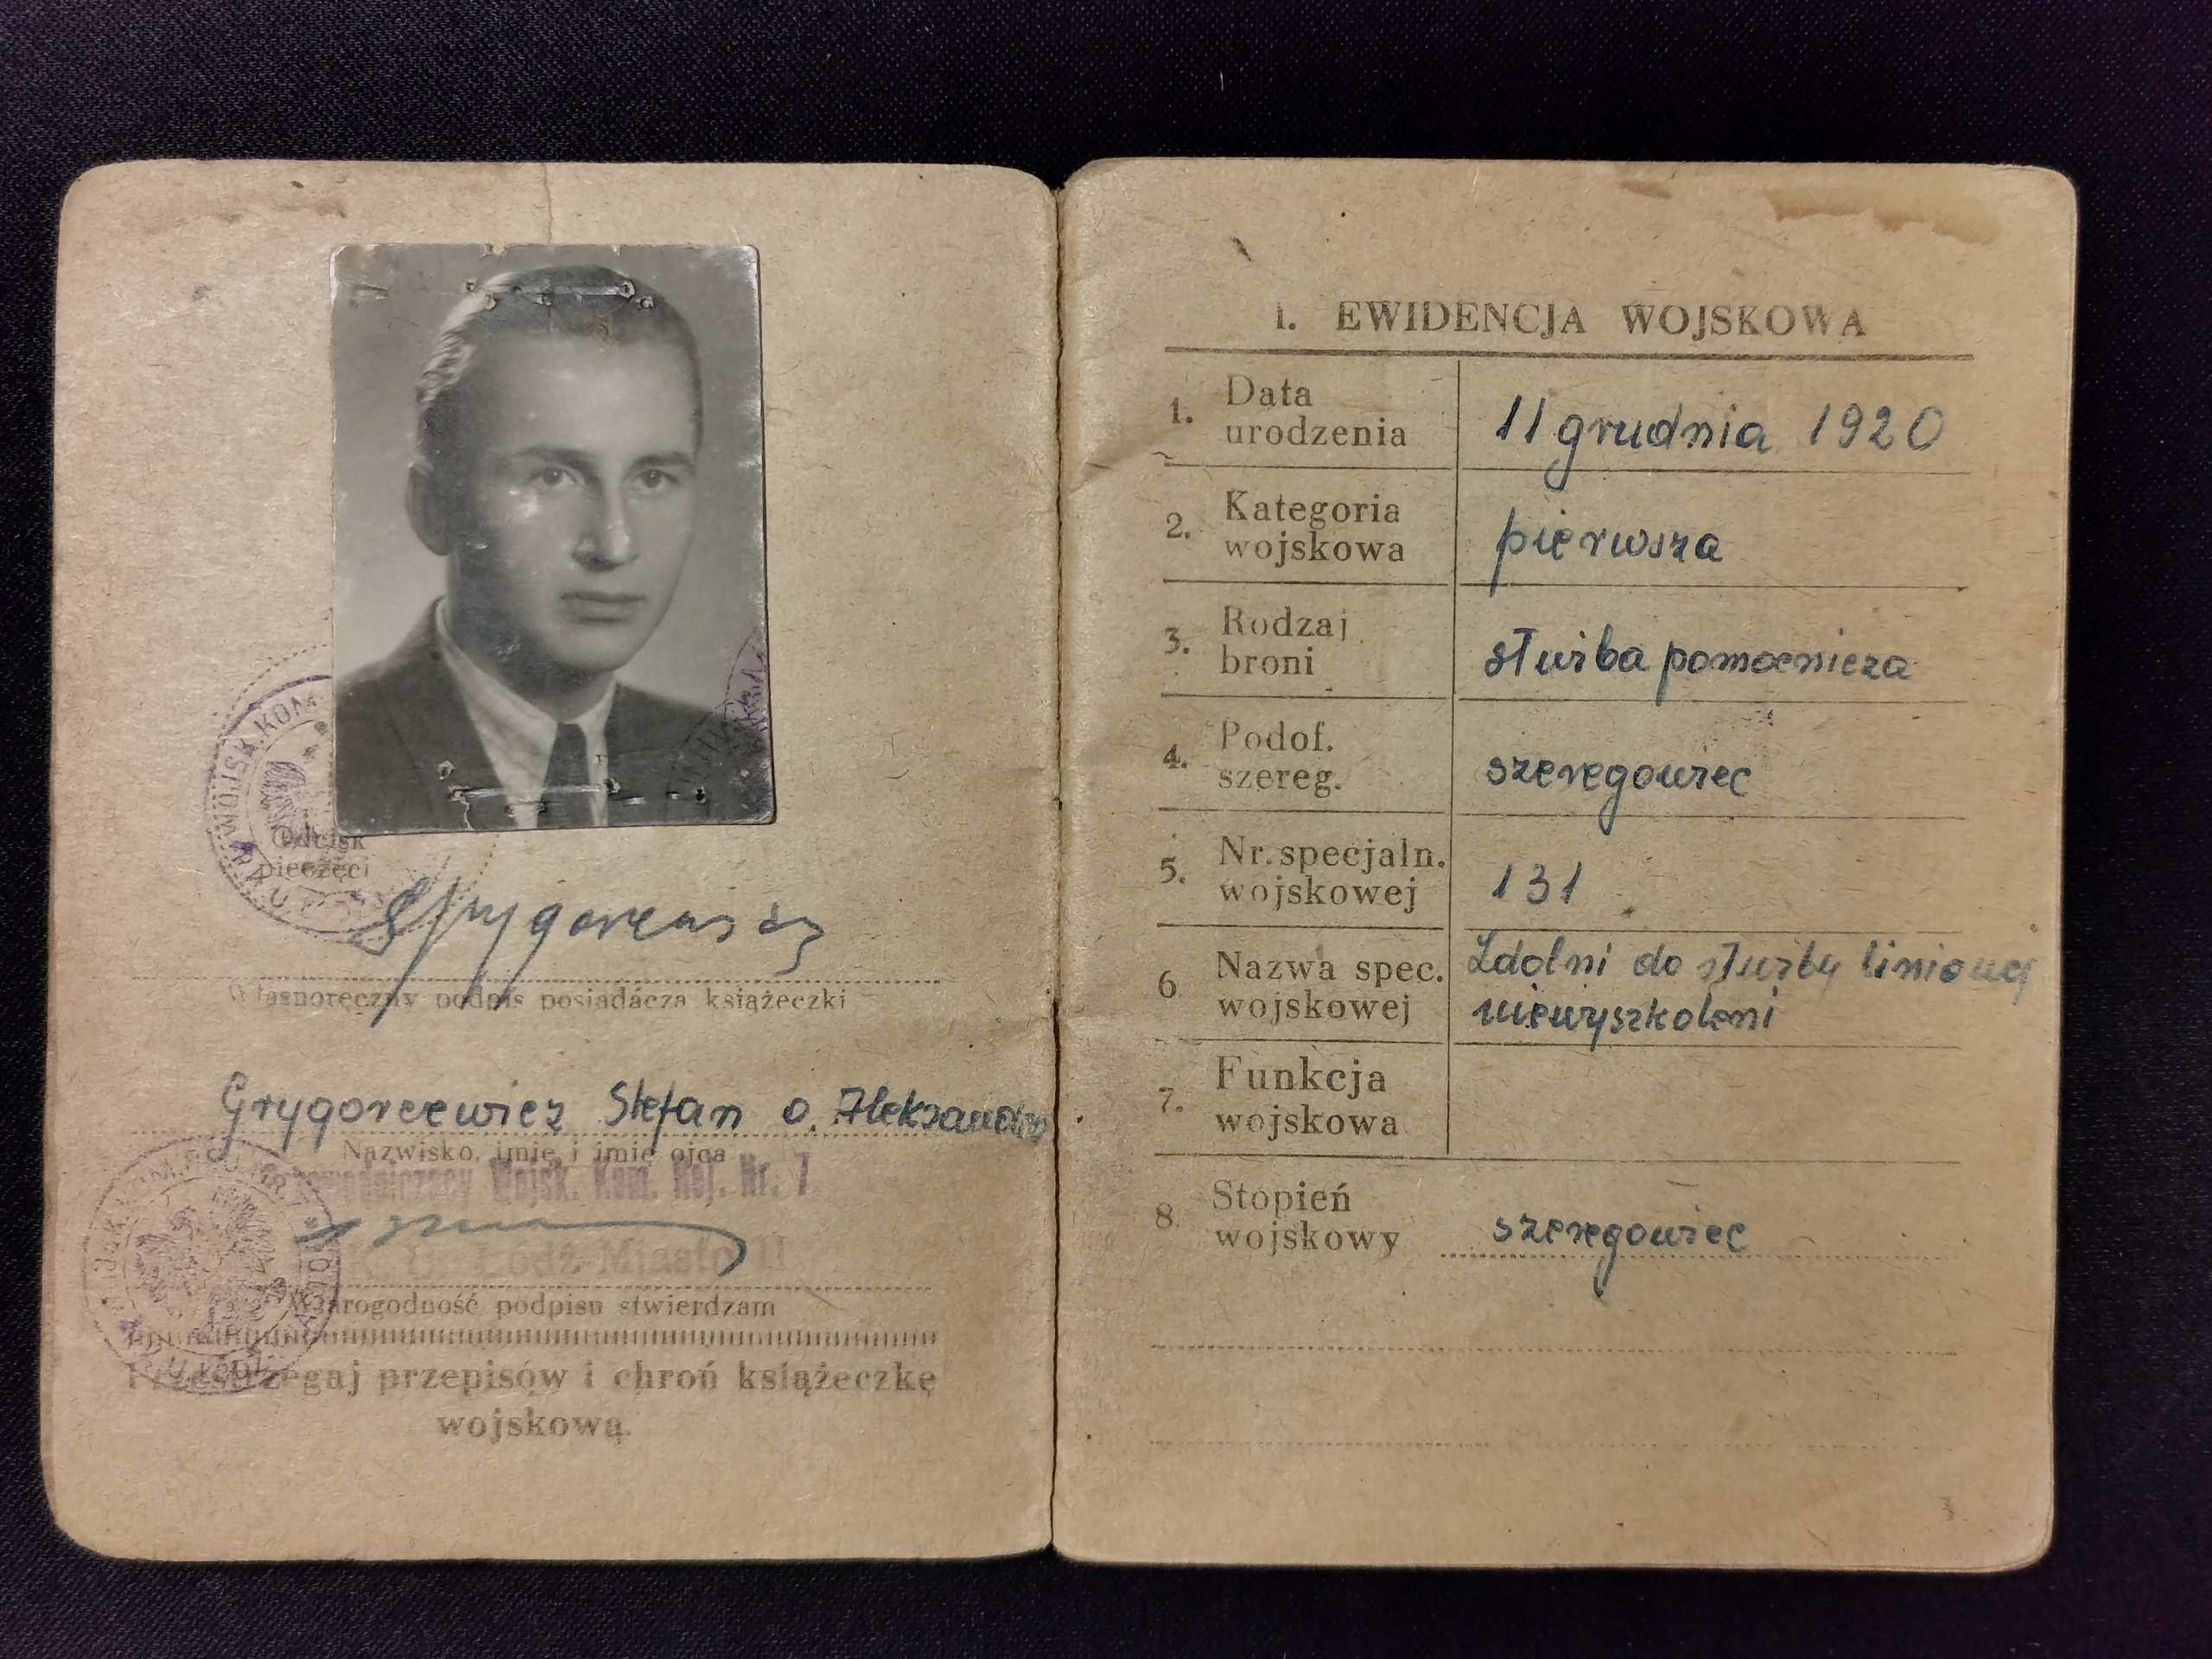 WOJSK. KOM
Odcisk
pieczęci
Własnoręczny podpis posiadacza książeczki
Grygorcewicz Stefan o. Aleksander
Nazwisko, imię i imię ojca
Przewodniczący Wojsk. Kom. Rej. Nr. 7
Łódź-Miasto II
Wiarogodność podpisu stwierdzam
Przestrzegaj przepisów i chroń książeczkę
wojskową.
I. EWIDENCJA WOJSKOWA
1. Data urodzenia 11 grudnia 1920
2. Kategoria wojskowa pierwsza
3. Rodzaj broni służba pomocnicza
4. Podof. szereg. szeregowiec
5. Nr. specjaln. wojskowej 131
6 Nazwa spec. wojskowej Zdolni do służby liniowej niewyszkoleni
7. Funkcja wojskowa
8. Stopień wojskowy szeregowiec
3